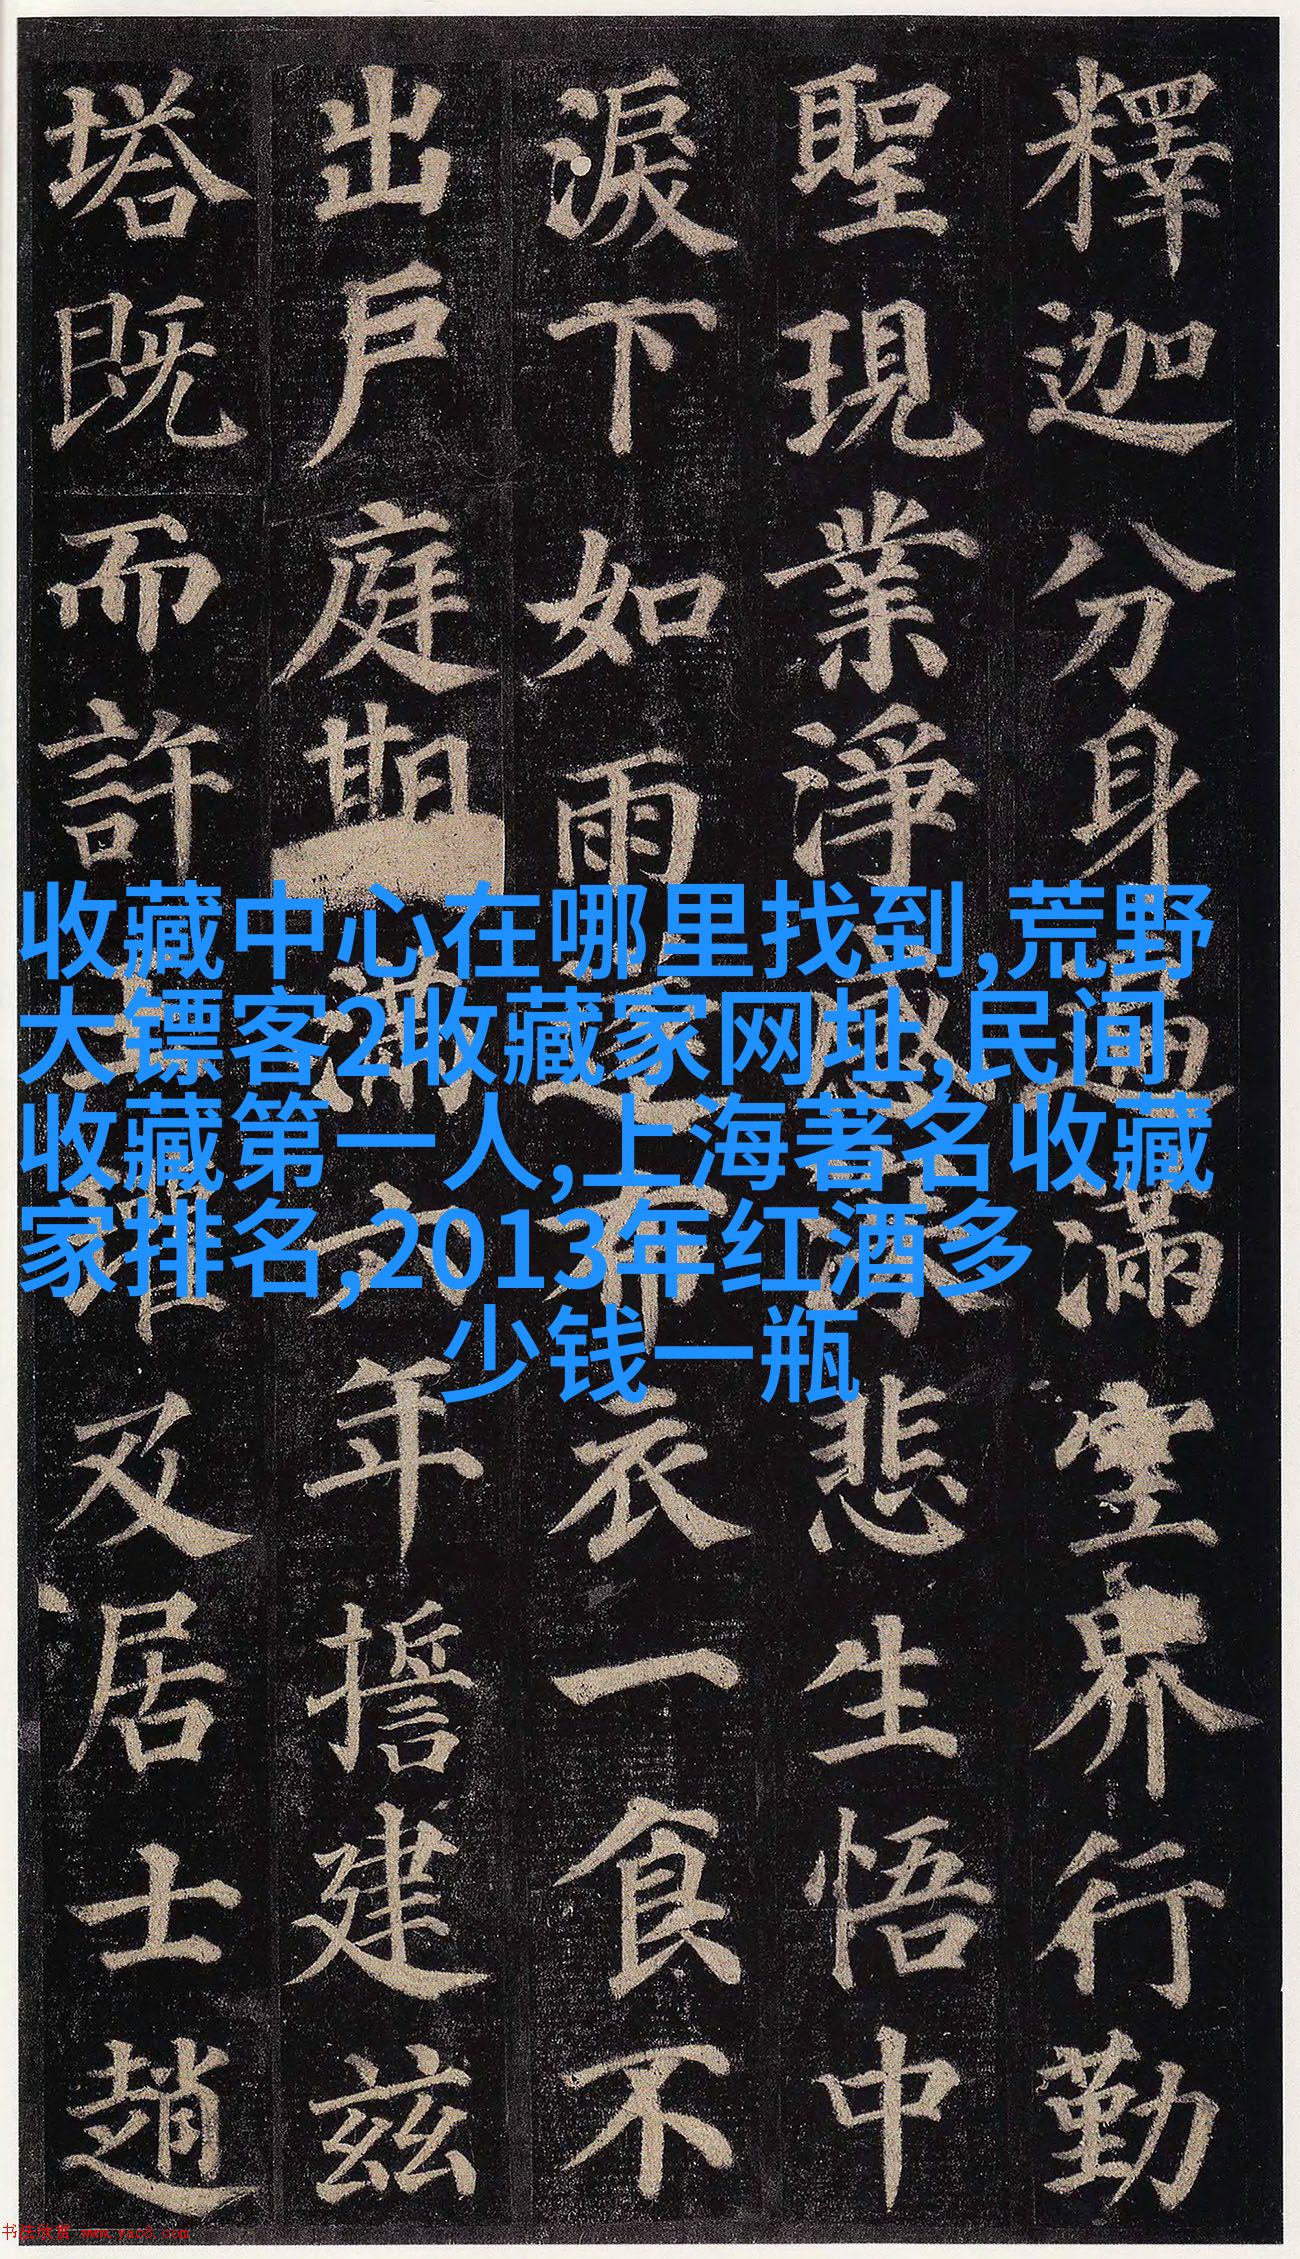 釋迦分身遍滿空界行勤
聖現業淨感深悲生悟中
淚下如雨遂布衣一食不
出戶庭期滿六年誓建茲
塔既而許王瓘及居士趙
收藏中心在哪里找到,荒野
大镖客2收藏家网址,民间
收藏第一人,上海著名收藏
家排名,2013年红酒多
少钱一瓶
书法欣赏 www.yac8.com